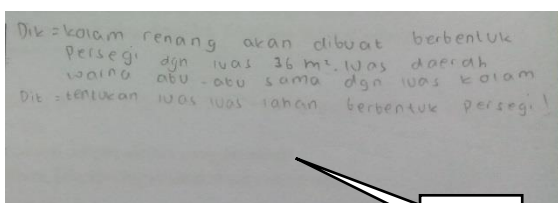 Dik = kolam renang akan dibuat berbentuk
persegi dgn luas 36 m². luas daerah
warna abu-abu sama dgn luas kolam
Dit = tentukan luas luas lahan berbentuk persegi!